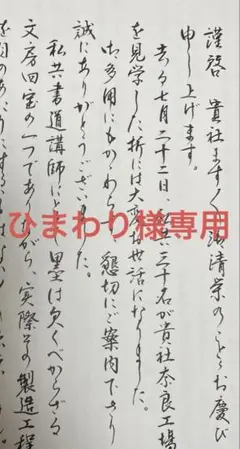 謹啓 貴社ますます御清栄のこととお慶び
申し上げます。
去る七月二十二日、 三十名が貴社奈良工場
を見学した折には大変お世話になりました。
御多用にもかかわらず 懇切にご案内下さり
誠にありがとうございました。
私共書道講師にとり 墨は欠くべからざる
文房四宝の一つでありながら、実際その製造工程
ひまわり様専用